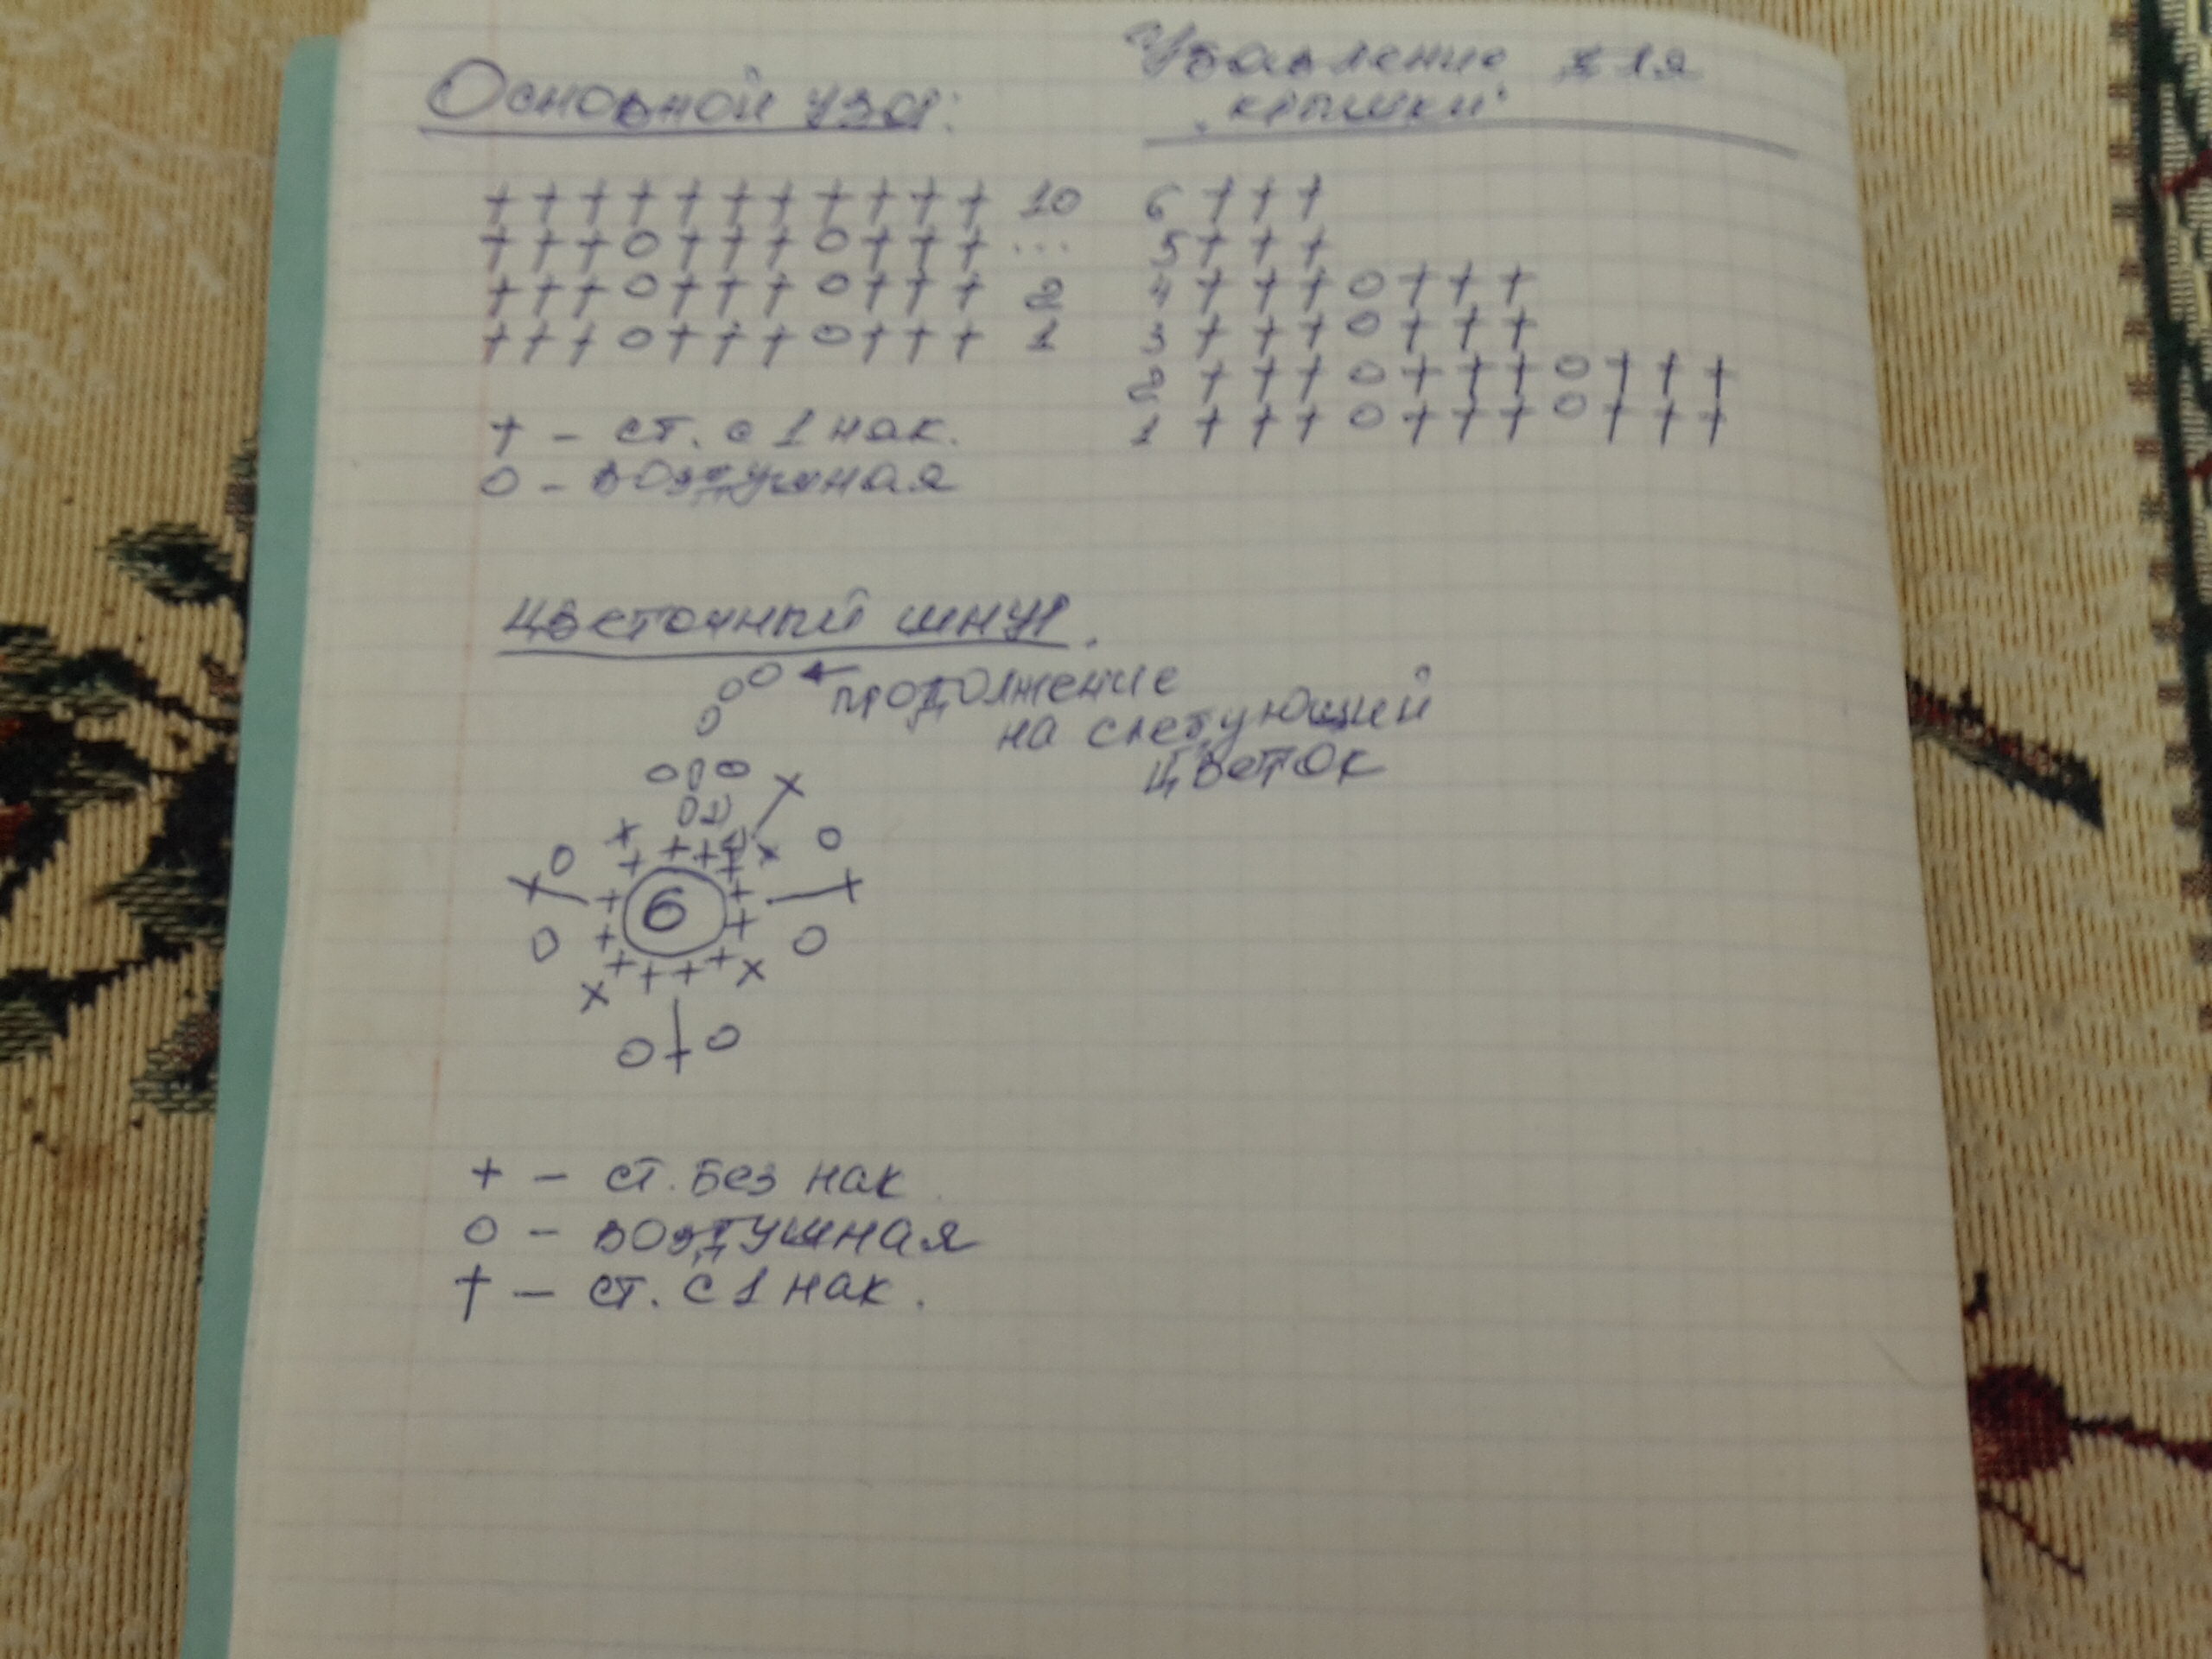 Основной узор:
+++++++++++ 10
+++o+++o+++ ...
+++o+++o+++ 2
+++o+++o+++ 1
+ - ст. с 1 нак.
o - воздушная
Убавление для
"крышки"
6 +++
5 +++
4 +++o+++
3 +++o+++
2 +++o+++o+++
1 +++o+++o+++
Цветочный шнур.
продолжение
на следующий
цветок
6
+ - ст. без нак.
o - воздушная
† - ст. с 1 нак.